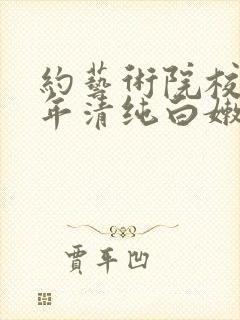 約藝術院校
年清纯白嫩
賈平凹